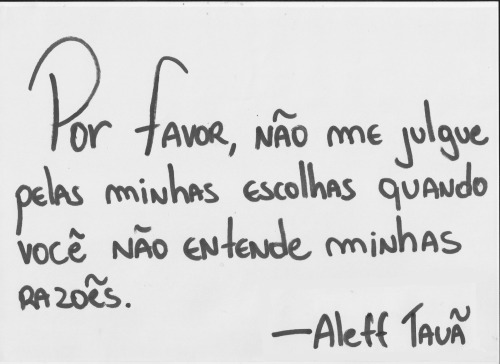 Por favor, não me julgue
pelas minhas escolhas quando
vocẽ não entende minhas
razoẽs.
—Aleff Tauã